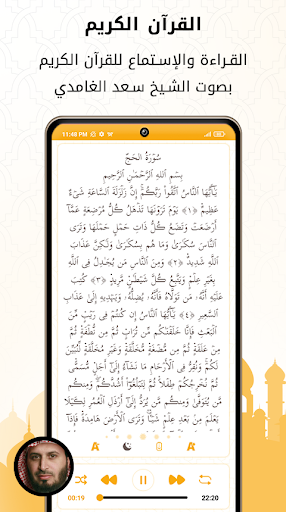 القرآن الكريم
القراءة والإستماع للقرآن الكريم
بصوت الشيخ سعد الغامدي
11:48 PM
سُورَةُ الحَجِّ
بِسْمِ اللَّهِ الرَّحْمَٰنِ الرَّحِيمِ
يَٰٓأَيُّهَا النَّاسُ اتَّقُوا رَبَّكُمْ إِنَّ زَلْزَلَةَ السَّاعَةِ شَيْءٌ
عَظِيمٌ ﴿١﴾ يَوْمَ تَرَوْنَهَا تَذْهَلُ كُلُّ مُرْضِعَةٍ عَمَّا
أَرْضَعَتْ وَتَضَعُ كُلُّ ذَاتِ حَمْلٍ حَمْلَهَا وَتَرَى
النَّاسَ سُكَٰرَىٰ وَمَا هُم بِسُكَٰرَىٰ وَلَٰكِنَّ عَذَابَ
اللَّهِ شَدِيدٌ ﴿٢﴾ وَمِنَ النَّاسِ مَن يُجَٰدِلُ فِي اللَّهِ
بِغَيْرِ عِلْمٍ وَيَتَّبِعُ كُلَّ شَيْطَٰنٍ مَّرِيدٍ ﴿٣﴾ كُتِبَ
عَلَيْهِ أَنَّهُۥ مَن تَوَلَّاهُ فَأَنَّهُۥ يُضِلُّهُۥ وَيَهْدِيهِ إِلَىٰ عَذَابِ
السَّعِيرِ ﴿٤﴾ يَٰٓأَيُّهَا النَّاسُ إِن كُنتُمْ فِي رَيْبٍ مِّنَ
الْبَعْثِ فَإِنَّا خَلَقْنَٰكُم مِّن تُرَابٍ ثُمَّ مِن نُّطْفَةٍ ثُمَّ
مِنْ عَلَقَةٍ ثُمَّ مِن مُّضْغَةٍ مُّخَلَّقَةٍ وَغَيْرِ مُخَلَّقَةٍ لِّنُبَيِّنَ
لَكُمْ وَنُقِرُّ فِي الْأَرْحَامِ مَا نَشَاءُ إِلَىٰ أَجَلٍ مُّسَمًّى
ثُمَّ نُخْرِجُكُمْ طِفْلًا ثُمَّ لِتَبْلُغُوا أَشُدَّكُمْ وَمِنكُم
مَّن يُتَوَفَّىٰ وَمِنكُم مَّن يُرَدُّ إِلَىٰ أَرْذَلِ الْعُمُرِ لِكَيْلَا
يَعْلَمَ مِن بَعْدِ عِلْمٍ شَيْئًا وَتَرَى الْأَرْضَ هَامِدَةً فَإِذَا
A A
00:19 22:20